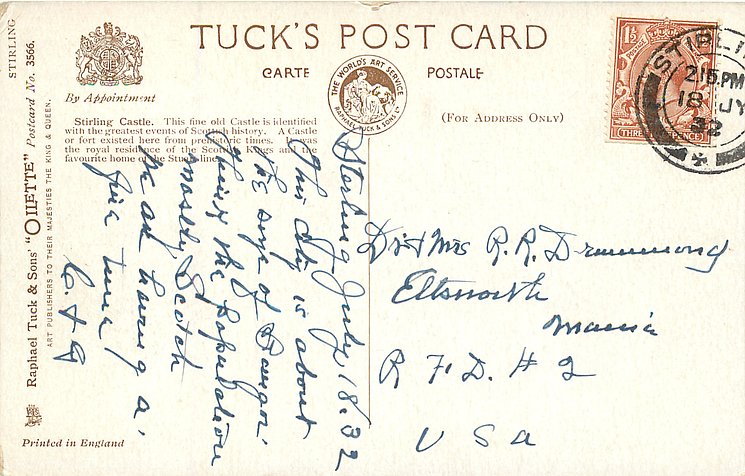 STIRLING
TUCK'S POST CARD
CARTE POSTALE
THE WORLD'S ART SERVICE
RAPHAEL TUCK & SONS LTD
By Appointment
(FOR ADDRESS ONLY)
Stirling Castle. This fine old Castle is identified
with the greatest events of Scottish history. A Castle
or fort existed here from prehistoric times. It was
the royal residence of the Scottish Kings and the
favourite home of the Stuart line.
Raphael Tuck & Sons' "OILETTE" Postcard No. 3566.
ART PUBLISHERS TO THEIR MAJESTIES THE KING & QUEEN.
Printed in England
STIRLING
2 15 PM
18 JY
32
1½
THREE HALFPENCE
Sterling July 18.32
This city is about
the size of Bangor.
think the population
mostly Scotch
we are having a
fine time
Dr & Mrs R. R. Drummond
Ellsworth
Maine
R F. D. # 2
U S a